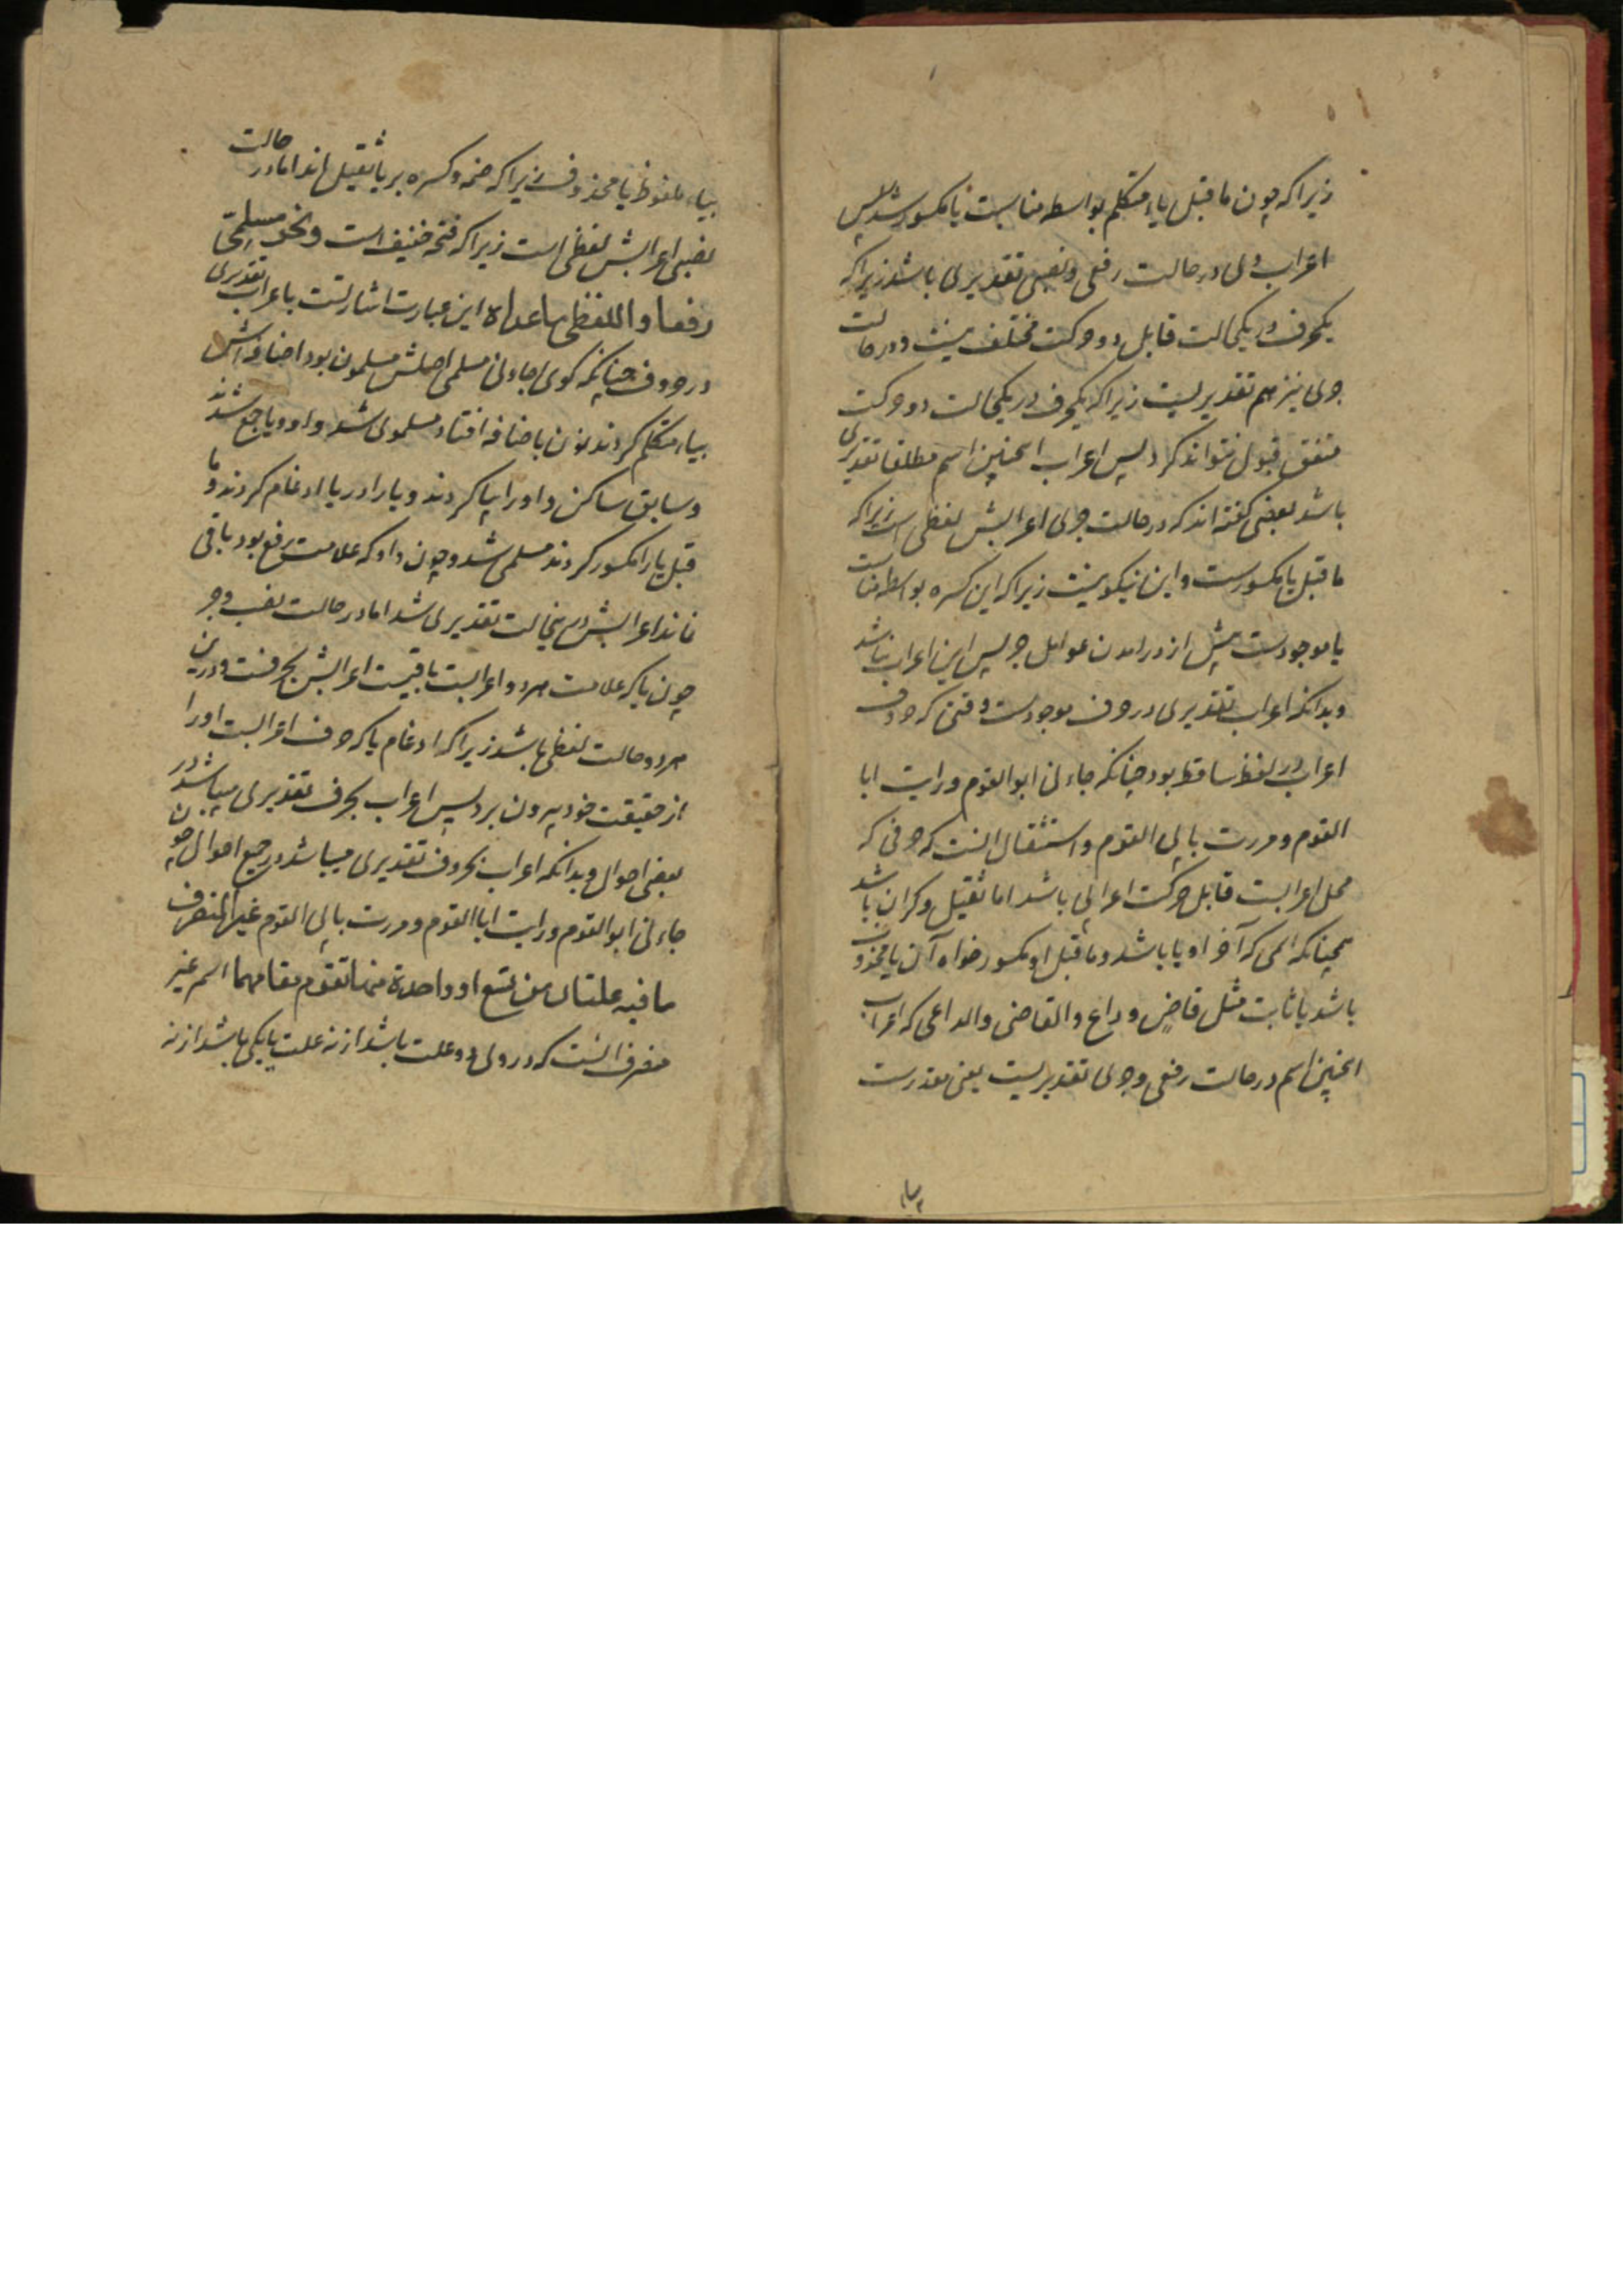 زیراکه چون ماقبل یاء متکلم بواسطه مناسبت یا مکسور شد پس
اعراب وی در حالت رفعی و نصبی تقدیری باشد زیراکه
یکحرف در یکحالت قابل دو حرکت مختلف نیست و در حالت
جری نیز هم تقدیریست زیراکه یکحرف در یکحالت دو حرکت
متفق قبول نتواند کرد پس اعراب اینچنین اسم مطلقا تقدیری
باشد بعضی گفته اند که در حالت جری اعرابش لفظی است زیراکه
ماقبل یا مکسورست و این نیکو نیست زیراکه این کسره بواسطه مناسبت
یا موجودست پیش از درامدن عوامل جر پس این اعراب نباشد
وبدانکه اعراب تقدیری در حروف موجودست وقتی که حروف
اعراب در لفظ ساقط بود چنانکه جاءنی ابو القوم ورایت ابا
القوم ومررت بابی القوم واستثقال انست که حرفی که
محل اعرابست قابل حرکت اعرابی باشد اما ثقیل و کران باشد
همچنانکه اسمی که آخر او یا باشد و ماقبل او مکسور خواه آن یا محذوف
باشد یا ثابت مثل قاضٍ و داع والقاضی والداعی که اعراب
اینچنین اسم در حالت رفعی و جری تقدیریست یعنی مقدرست
بیاء
بیاء ملفوظ یا محذوف زیراکه ضمه و کسره بر یا ثقیل اند اما در حالت
نصبی اعرابش لفظی است زیراکه فتحه خفیف است ونحو مسلمیّ
رفعا واللفظی ماعداه این عبارت اشارتست باعراب تقدیری
در حروف چنانکه کوی جاءنی مسلمی اصلش مسلمون بود اضافه اش
بیاء متکلم کردند نون باضافه افتاد مسلموی شد واو ویا جمع شدند
وسابق ساکن واو را یا کردند و یا را در یا ادغام کردند و ما
قبل یا را مکسور کردند مسلمی شد وچون واو که علامت رفع بود باقی
نماند اعرابش درینحالت تقدیری شد اما در حالت نصب وجر
چون یا که علامت هردو اعرابست باقیست اعرابش بحرفست و درین
هردو حالت لفظی باشد زیراکه ادغام یا که حرف اعرابست او را
از حقیقت خود بیرون نبرد پس اعراب بحرف تقدیری میباشد در
بعضی احوال وبدانکه اعراب بحروف تقدیری میباشد در جمیع احوال چون
جاءنی ابو القوم ورایت ابا القوم ومررت بابی القوم غیر المنصرف
ما فیه علتان من تسع او واحدة منها تقوم مقامهما اسم غیر
منصرف انست که در وی دو علت باشد از نه علت یا یکی باشد از نه